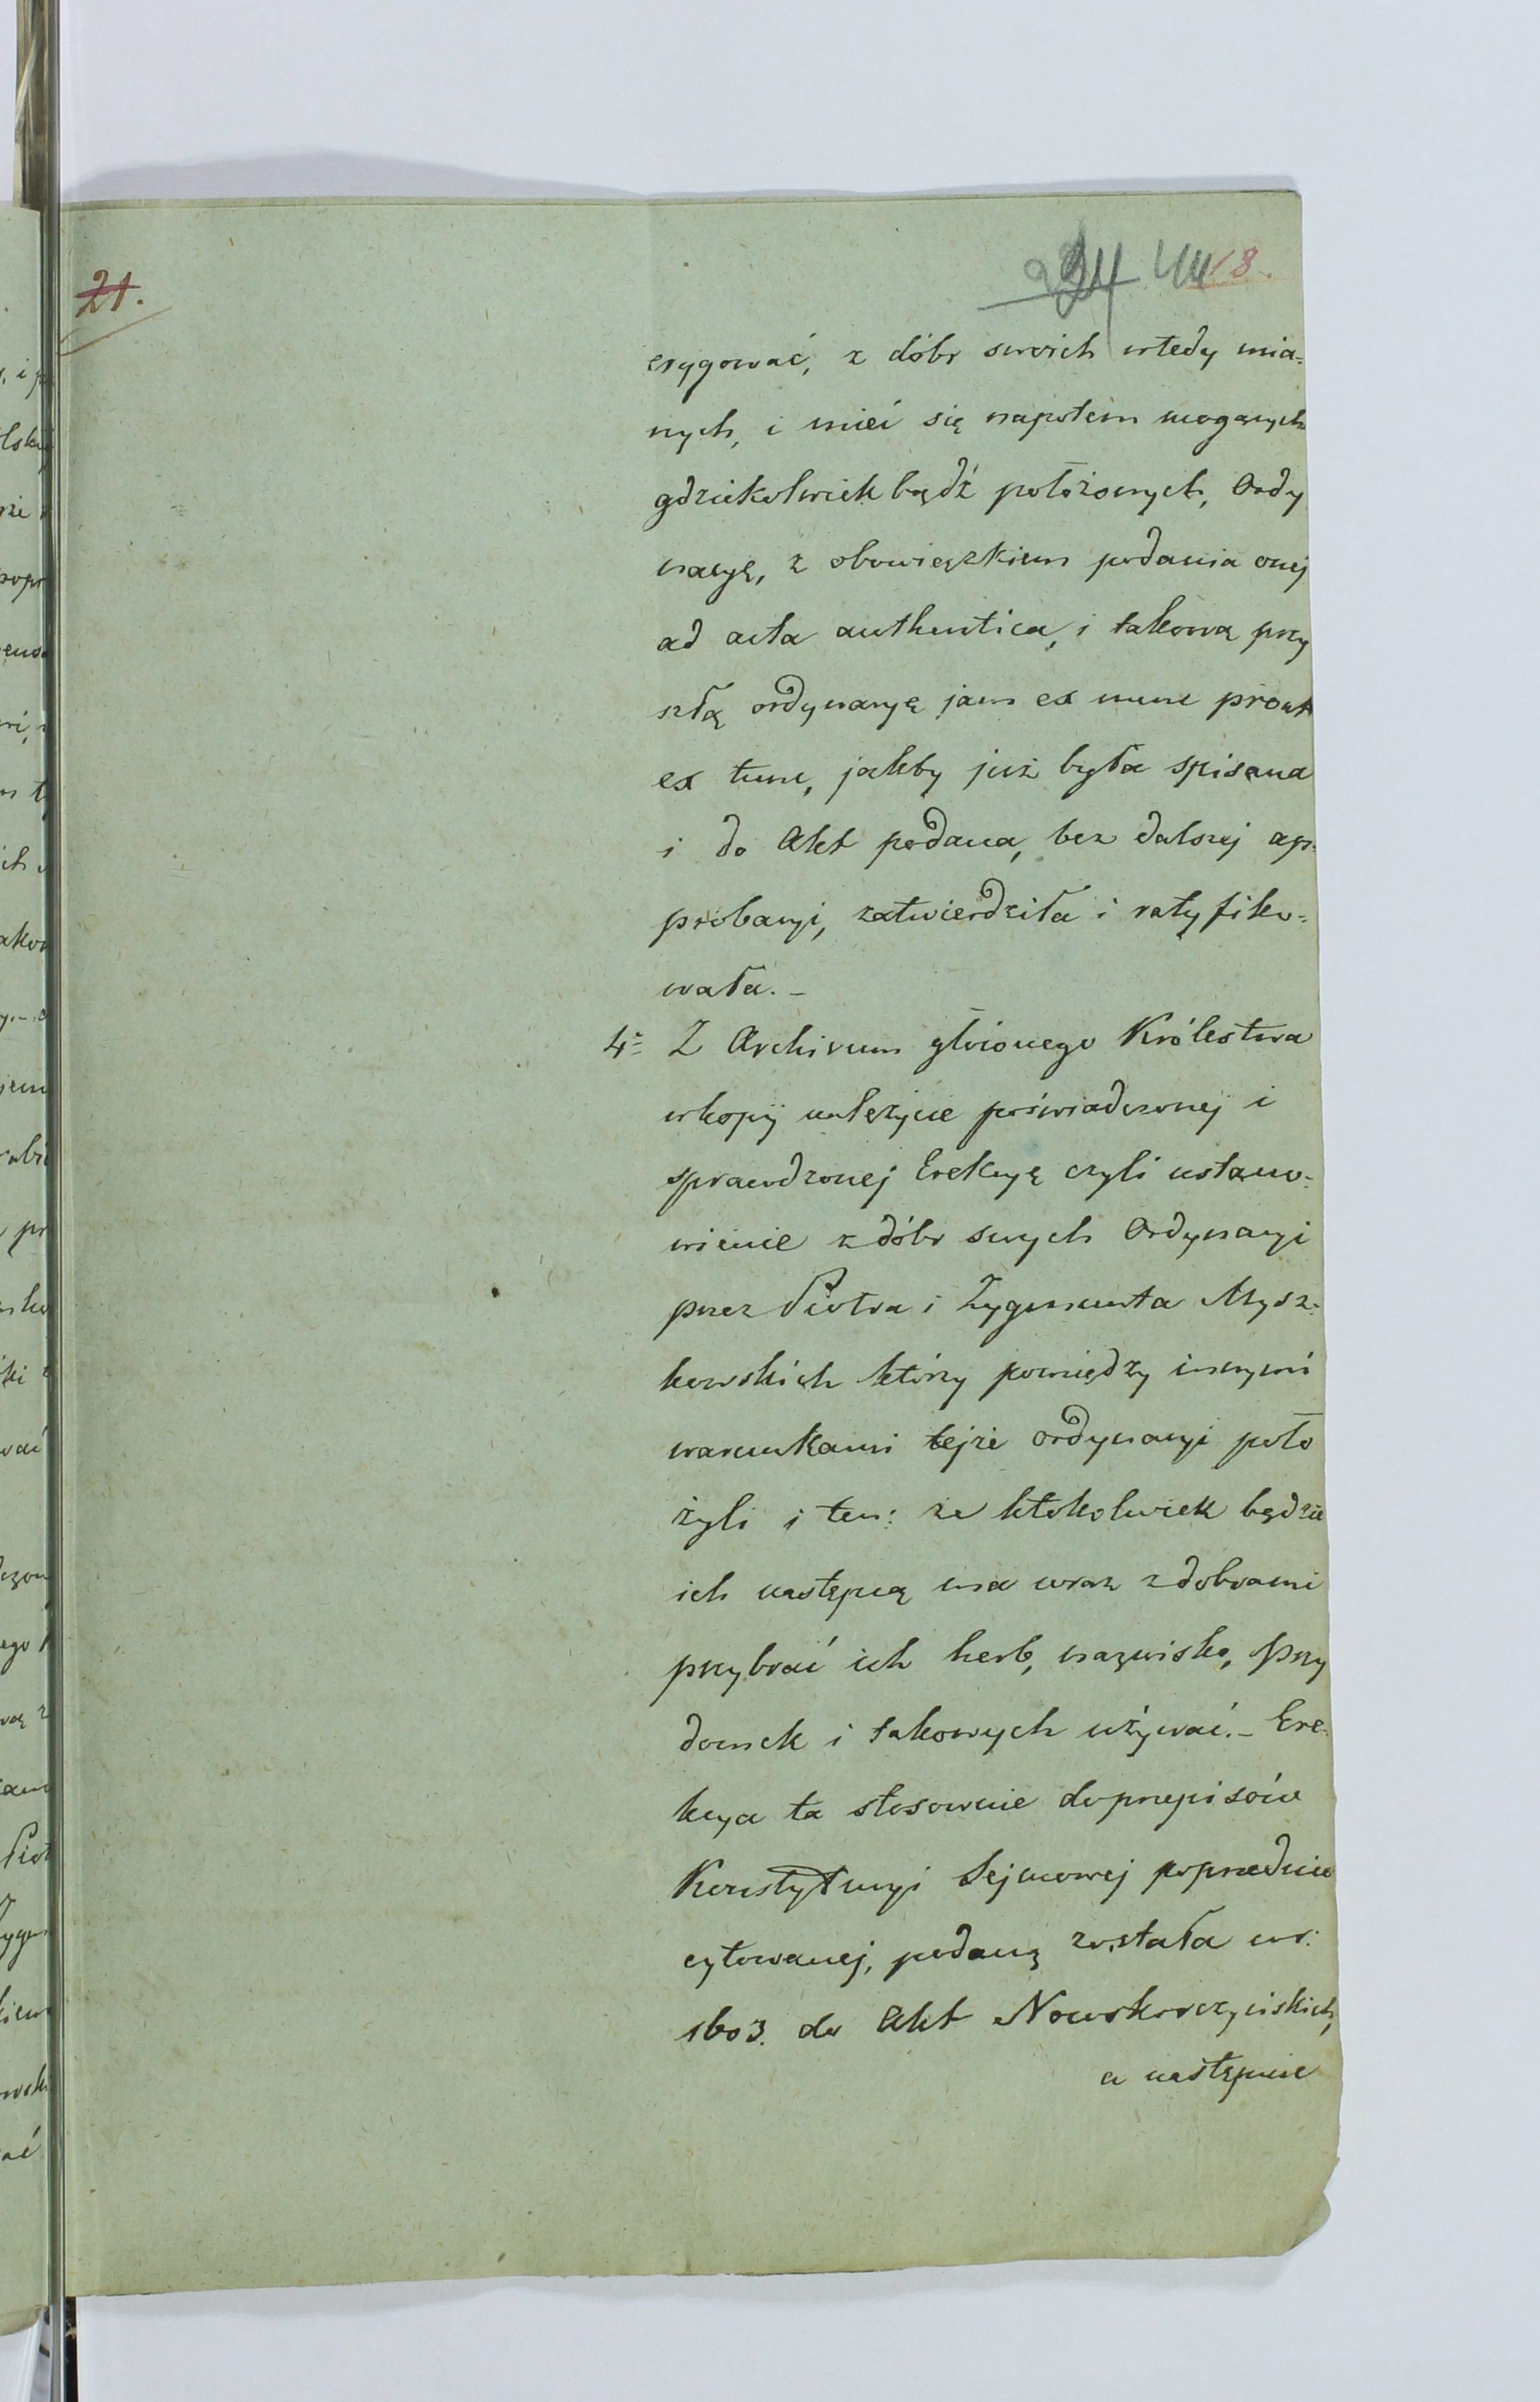 21.
234 44 18.
erygować, z dóbr swoich wtedy mia=
nych, i mieć się napotem mogących
gdziekolwiek bądź położonych, Ordy
nacyę, z obowiązkiem podania onej
ad acta authentica, i takową przy
szłą ordynacyę jam ex nunc prout
ex tunc, jakby już była spisana
i do Akt podana, bez dalszej ap=
probacyi, zatwierdziła i ratyfiko=
wała. –
4= Z Archivum głównego Królestwa
w kopij należycie poświadczonej i
sprawdzonej Erekcyę czyli ustano=
wienie z dóbr swych Ordynacyi
przez Piotra i Zygmunta Mysz=
kowskich którzy pomiędzy innymi
warunkami tejże ordynacyi poło
żyli i ten: że ktokolwiek będzie
ich następcą ma wraz z dobrami
przybrać ich herb, nazwisko, Przy
domek i takowych używać. – Ere=
kcya ta stosownie do przepisów
Konstytucyi Sejmowej poprzednio
cytowanej, podaną została w r:
1603. do Akt Nowokorczyńskich,
a następnie